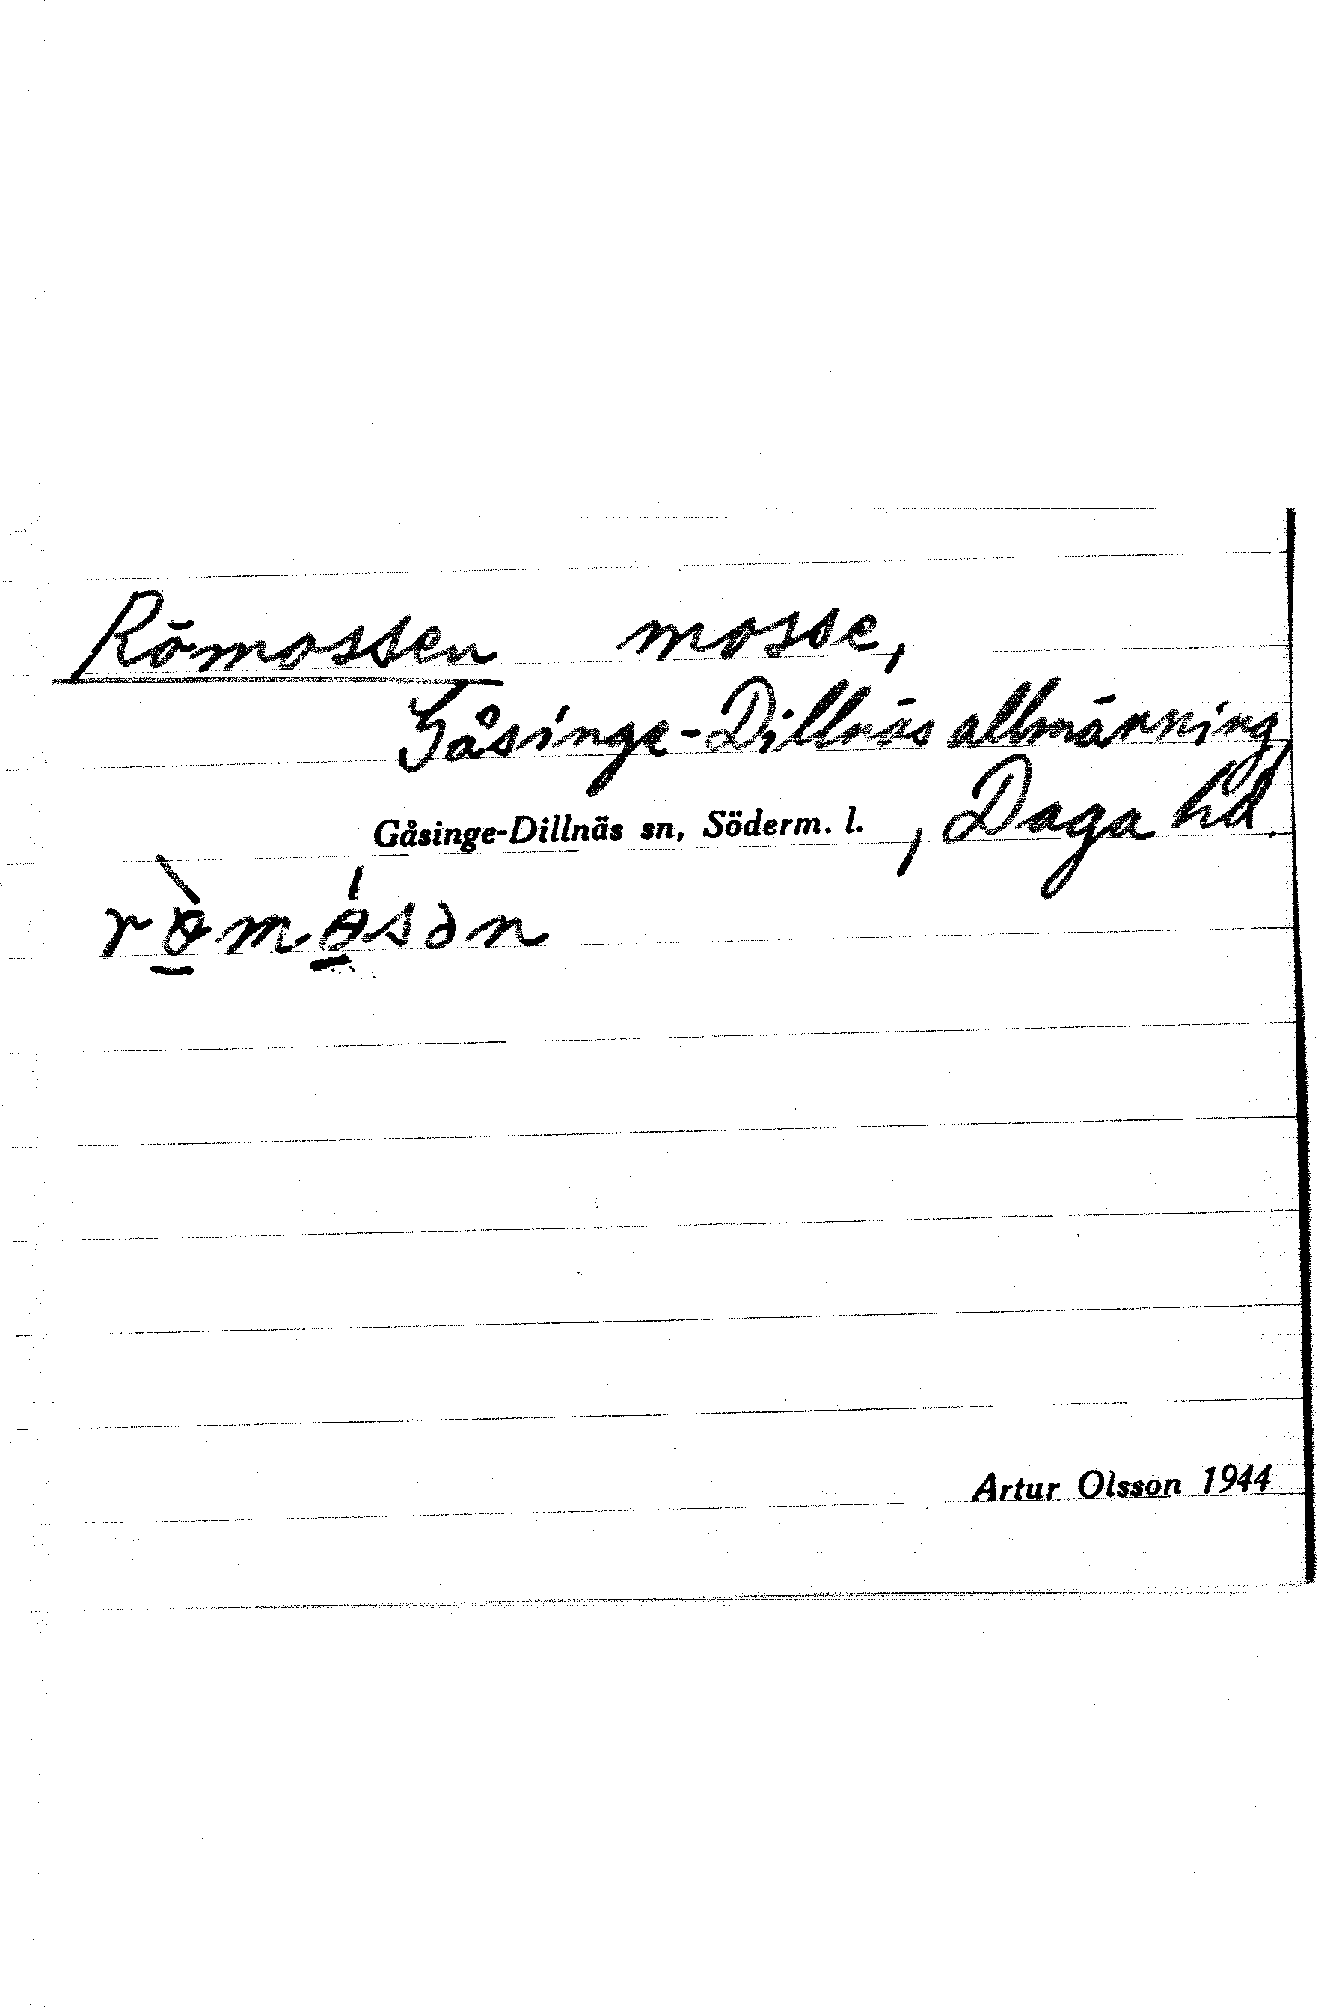 Römossen mosse,
Gåsinge-Dillnäs allmänning,
Gåsinge-Dillnäs sn, Söderm. l. , Daga hd.
rɵ̀mɵ́sən
Artur Olsson 1944